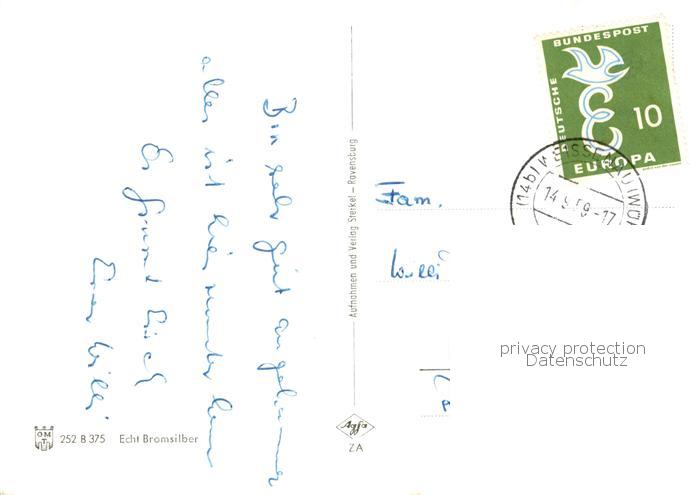 Bin sehr gut angekommen
alles ist hier wunderbar
Es grüsst Euch
Euer Willi
Aufnahmen und Verlag Sterkel – Ravensburg
Fam.
Willi
DEUTSCHE BUNDESPOST
10
EUROPA
(14b)
14.9.59-17
privacy protection
Datenschutz
OMT
252 B 375 Echt Bromsilber
Agfa
ZA